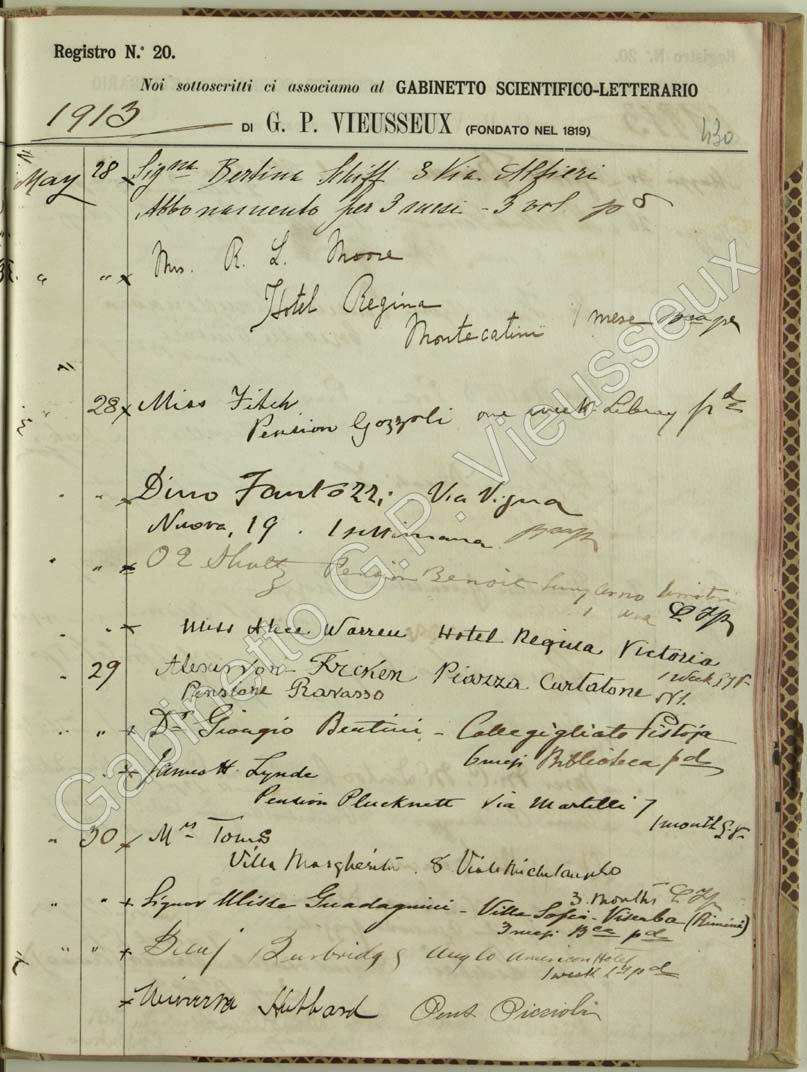 Registro N.° 20.
Noi sottoscritti ci associamo al GABINETTO SCIENTIFICO-LETTERARIO
1913
DI G. P. VIEUSSEUX (FONDATO NEL 1819)
430
May 28 Signa Bertina Schiff 3 Via Alfieri
Abbonamento per 3 mesi - 3 vol
" " Mrs. R. L. Moore
Hotel Regina
Montecatini 1 mese
28 Miss Fitch
Pension Gozzoli one week Library pd
" " Dino Fantozzi Via Vigna
Nuova, 19. 1 settimana
" " Pension Benoit Lung'arno
" " Miss Alice Warren Hotel Regina Victoria
1 week
29 Alexis von Piazza Curtatone
Pensione Ravasso
" " Dr Giorgio Bertini - Collegigliato Pistoja
6 mesi Biblioteca pd
James H. Lynde
Pension Plucknett Via Martelli 7
1 month
" 30 Mrs Toms
Villa Margherita 8 Viale Michelangelo
3 months
" " Signor Ulisse Guadagnini - Villa Sofia - Viserba (Rimini)
3 mesi Bca pd
" " Burbridge Anglo American Hotel
1 week pd
Hubbard Pens. Piccioli
Gabinetto G.P. Vieusseux